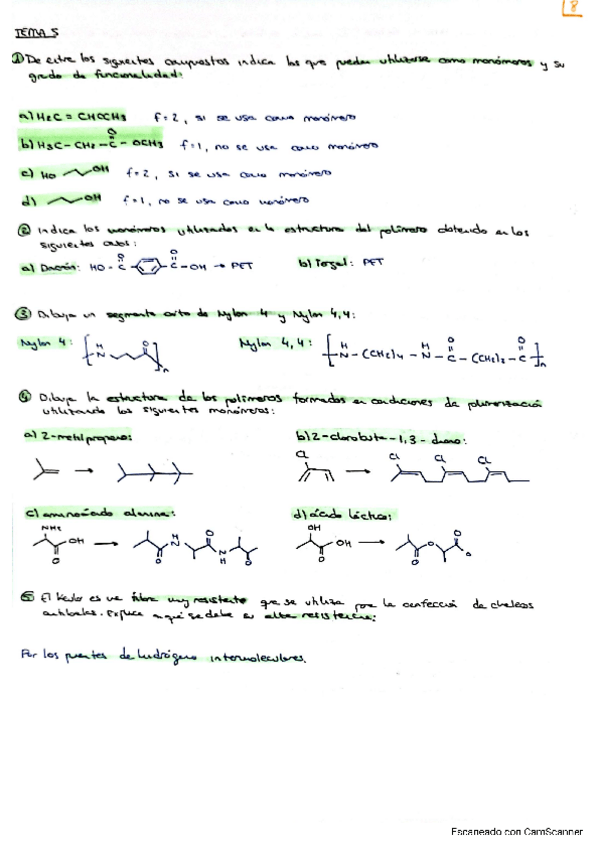 8
TEMA 5
① De entre los siguientes compuestos indica los que puedan utilizarse como monómeros y su
grado de funcionalidad:
a) H2C = CHOCH3 f=2, si se usa como monómero
O
b) H3C - CH2 - C - OCH3 f=1, no se usa como monómero
c) HO OH f=2, si se usa como monómero
d) OH f=1, no se usa como monómero
② Indica los monómeros utilizados en la estructura del polímero obtenido en los
siguientes casos:
a) Dacrón: HO - C C - OH → PET b) Tergal: PET
O O
③ Dibuja un segmento corto de Nylon 4 y Nylon 4,4:
Nylon 4: H N O n Nylon 4,4: H N - (CH2)4 - H N - O C - (CH2)2 - O C n
④ Dibuja la estructura de los polímeros formados en condiciones de polimerización
utilizando los siguientes monómeros:
a) 2-metilpropeno: b) 2-clorobuta-1,3-dieno:
Cl → Cl Cl Cl
c) aminoácido alanina: d) ácido láctico:
NH2 OH O → O H N O N H O
OH OH O → O O O
⑤ El Kevlar es una fibra muy resistente que se utiliza para la confección de chalecos
antibalas. Explica a qué se debe su alta resistencia:
Por los puentes de hidrógeno intermoleculares.
Escaneado con CamScanner